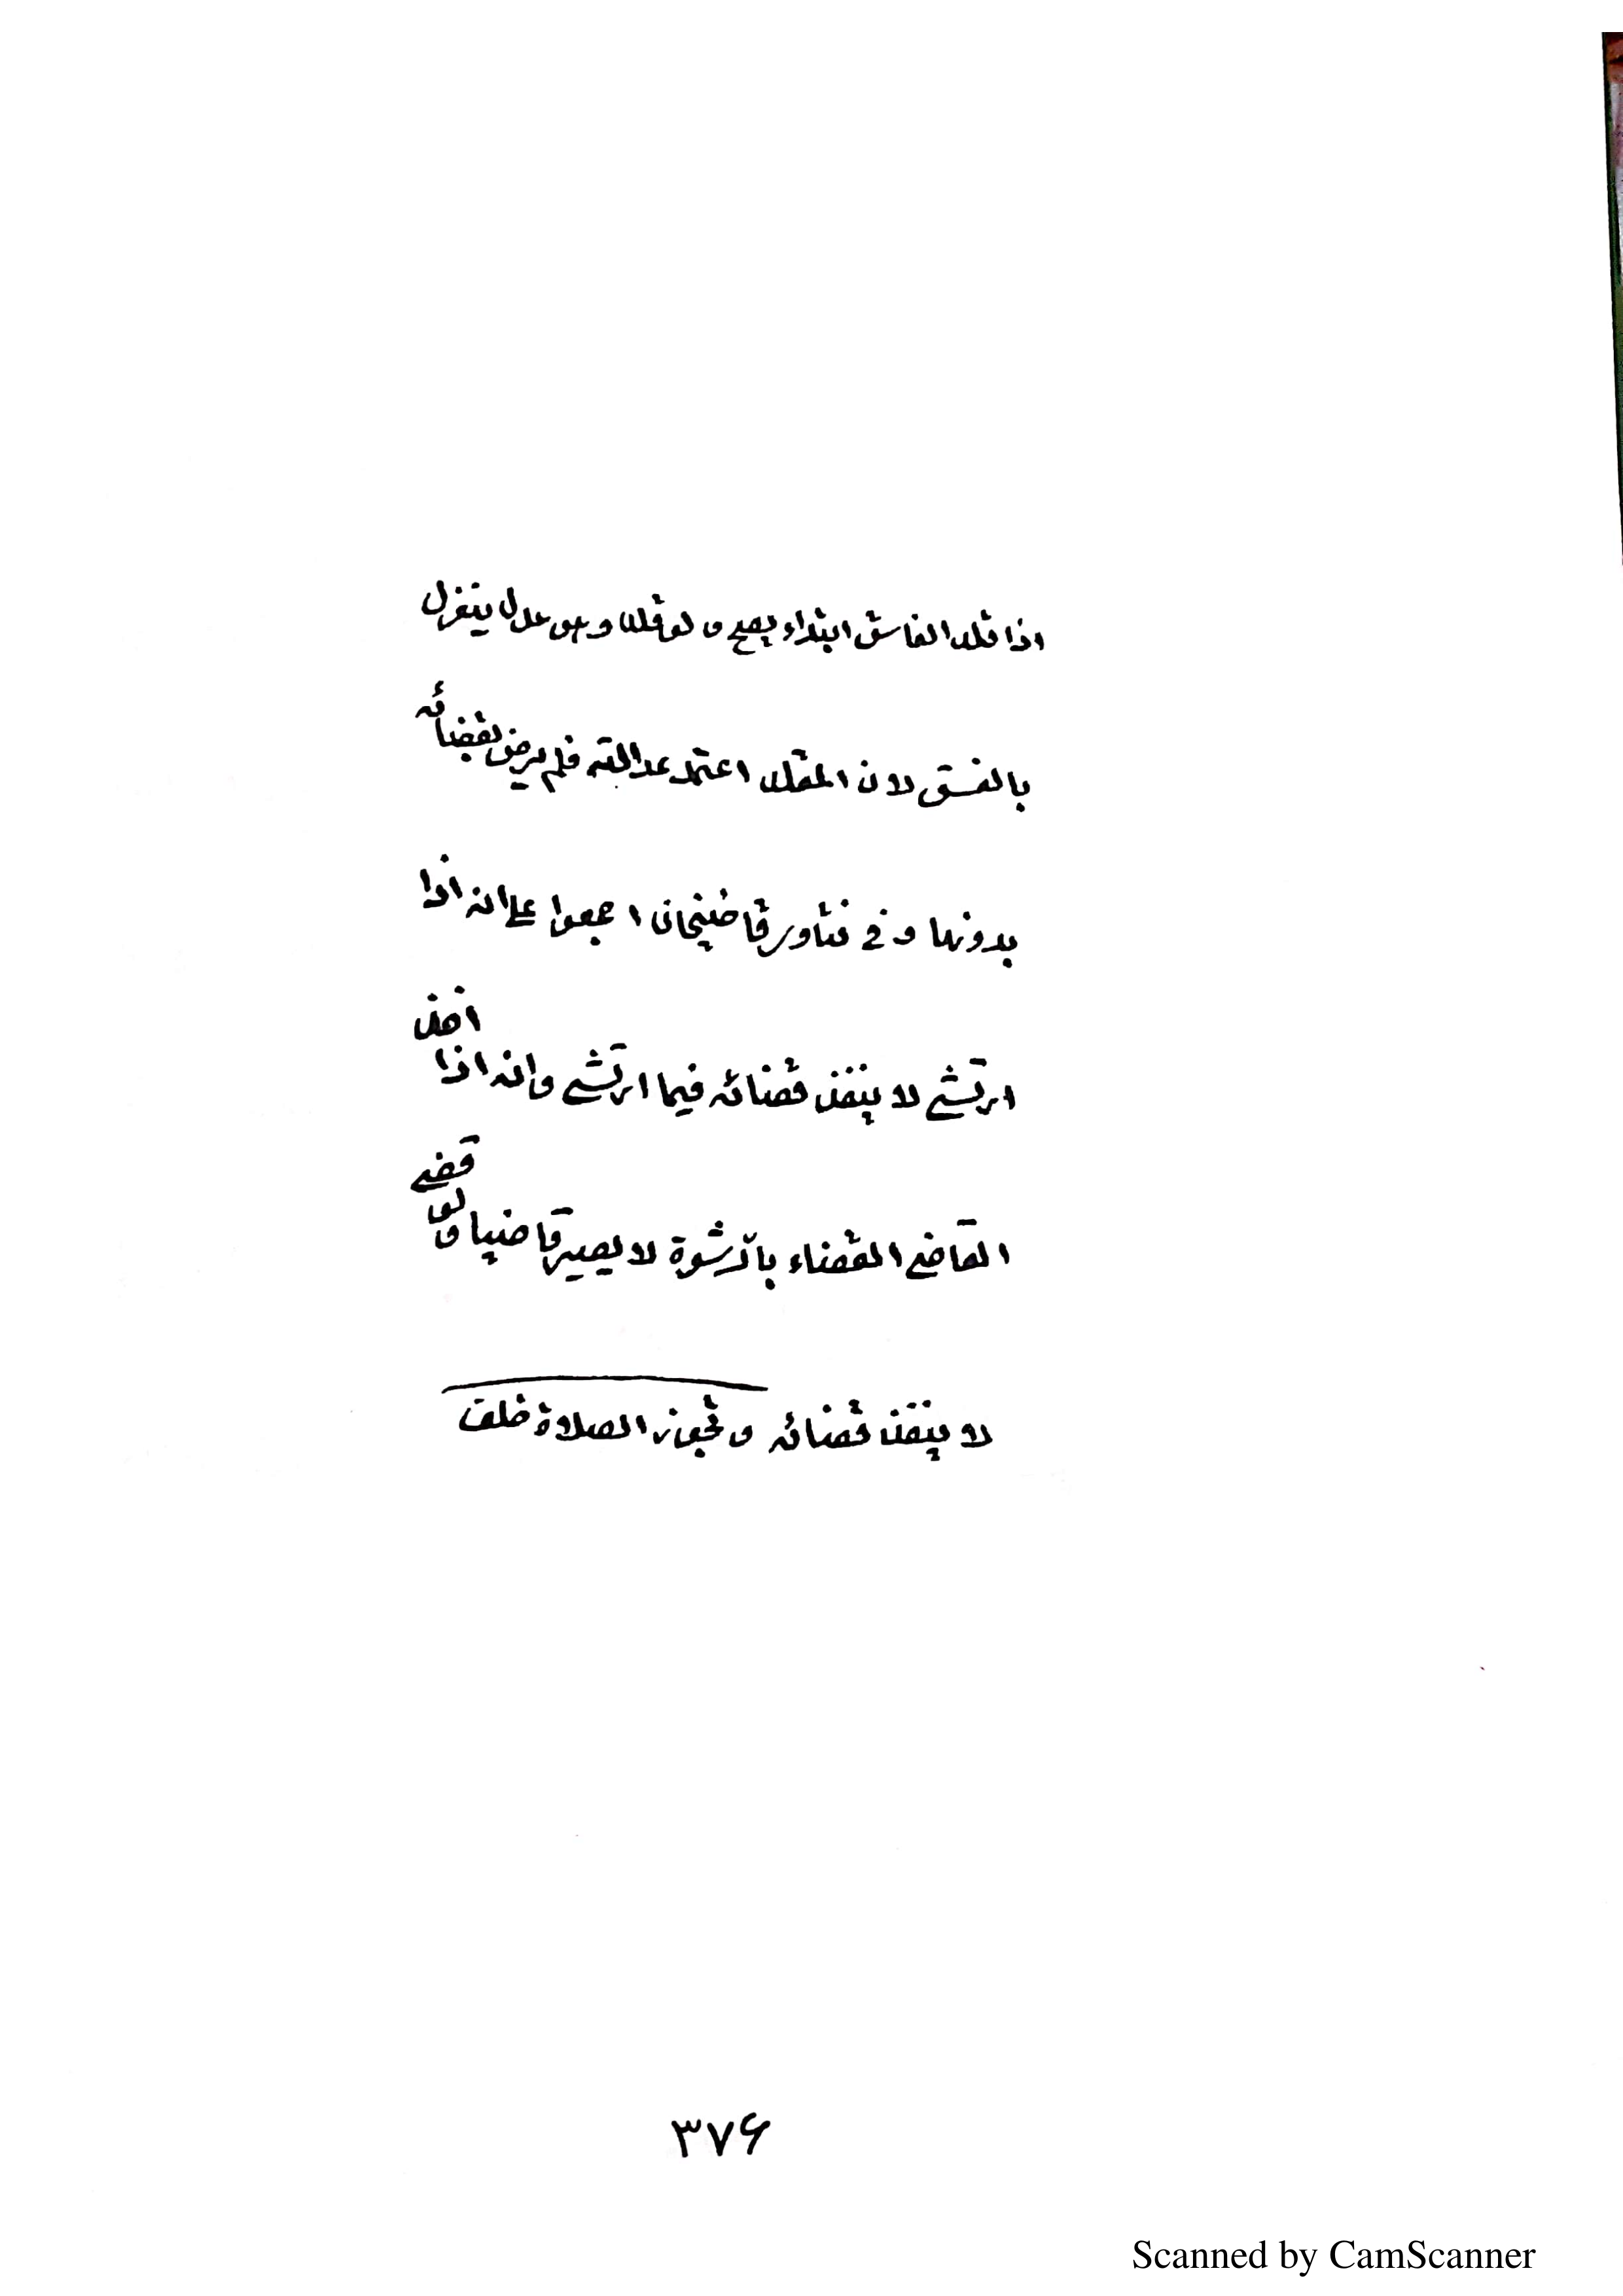 اذا قلد الفاسق ابتداء يصح و لو قلد و هو عدل ينعزل
بالفسق لان المقلد اعتمد عدالته فلم يرض بقضائه
بدونها و فى فتاوى قاضيخان اجمعوا على انه اذا
ارتشى لا ينفذ قضائه فيما ارتشى وانه اذا اخذ
القاضى القضاء بالرشوة لا يصير قاضيا و لو قضى
لا ينفذ قضائه و تجوز الصلاة خلف
۳۷۶
Scanned by CamScanner